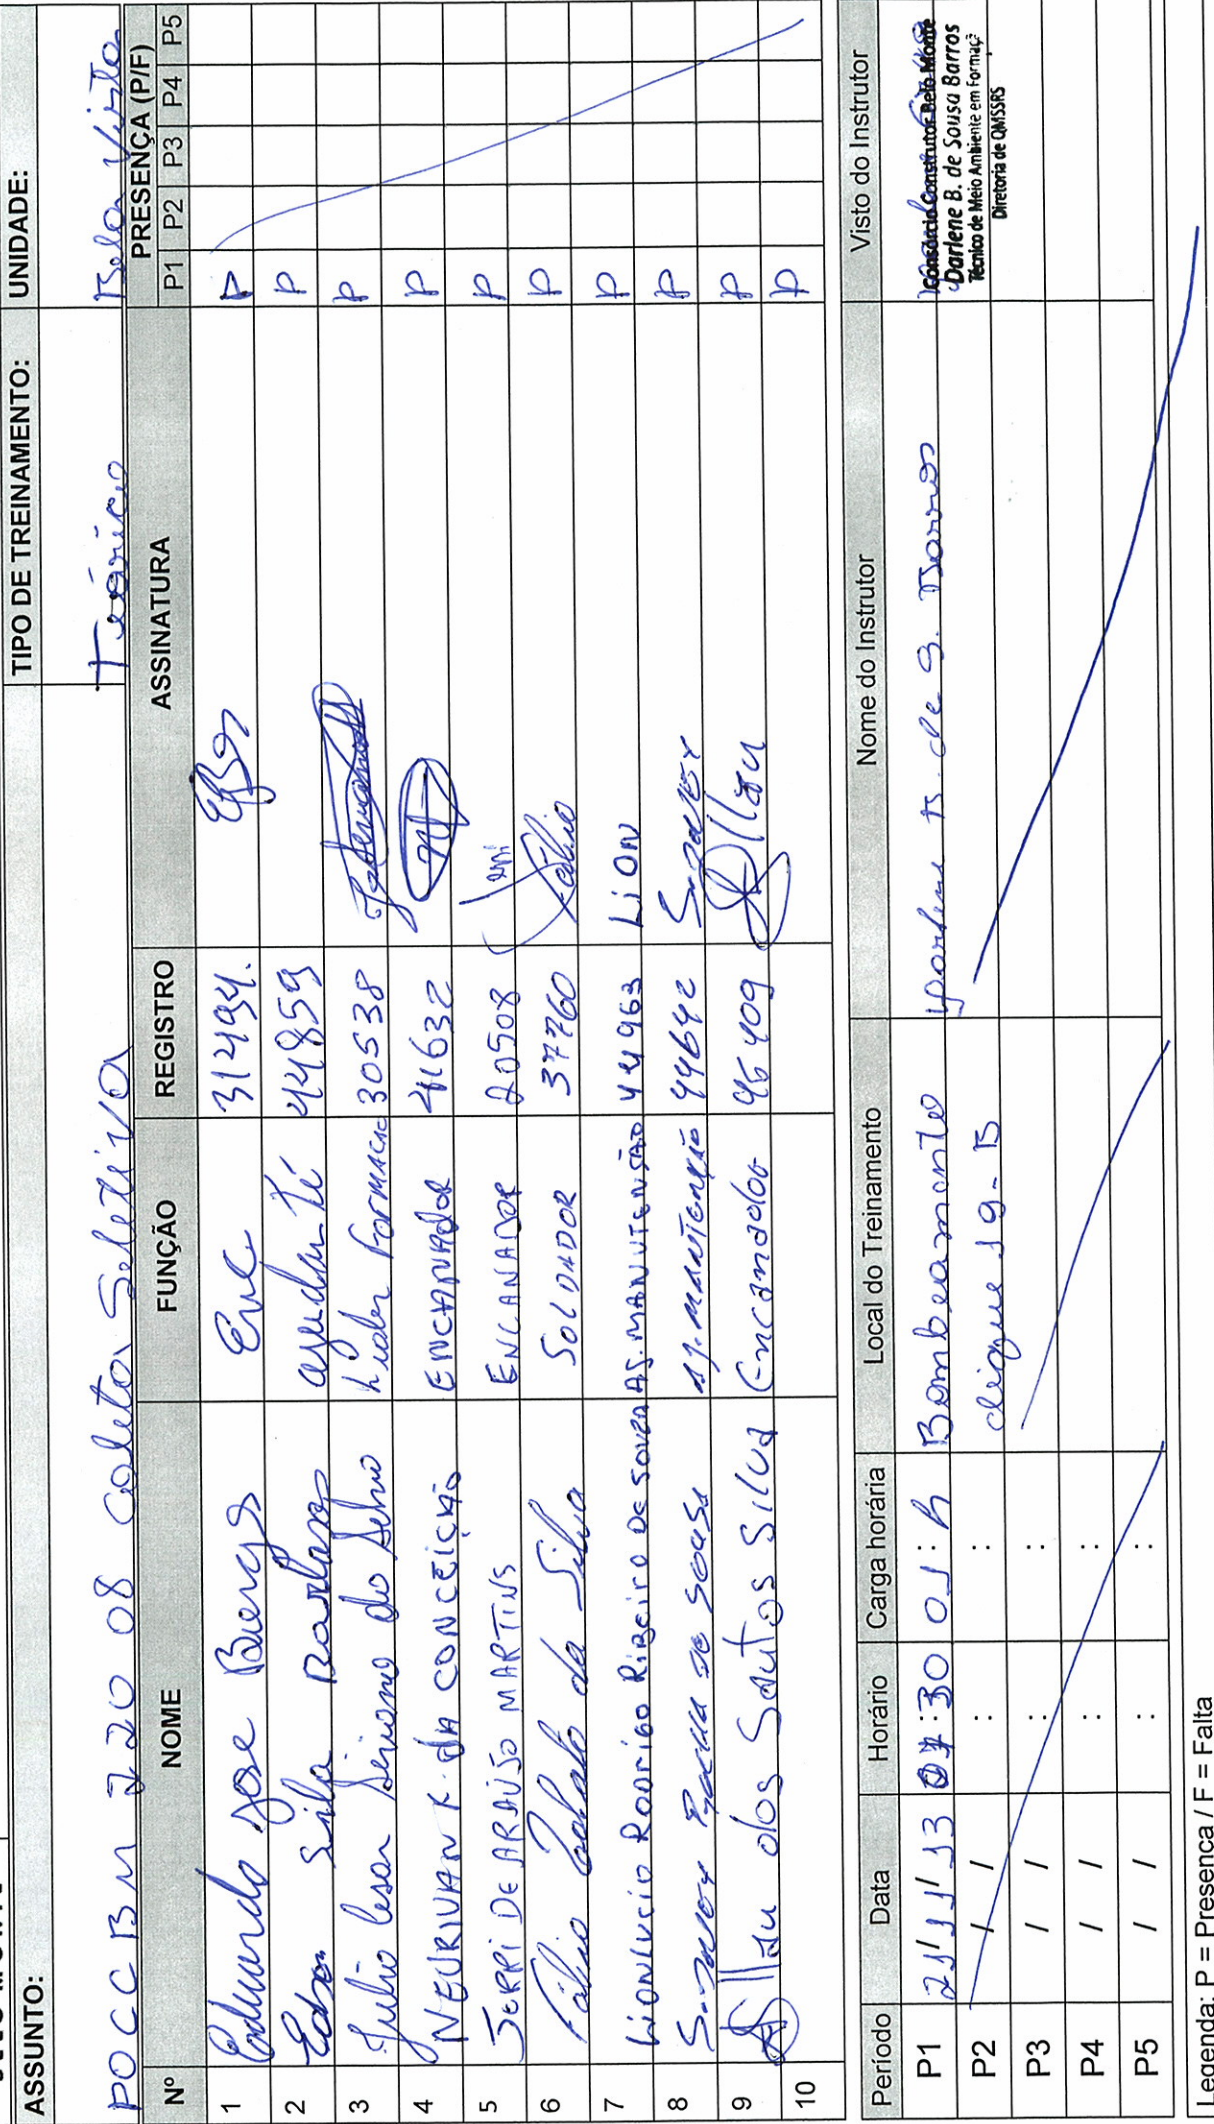 ASSUNTO: TIPO DE TREINAMENTO: UNIDADE:
POCCBM 220 08 Coleta Seletiva Teórico Bela Vista
Nº NOME FUNÇÃO REGISTRO ASSINATURA PRESENÇA (P/F)
P1 P2 P3 P4 P5
1 Eduardo Jose Enc 31494. P
2 Edson Silva Barbosa ajudante 44859 P
3 Julio Cesar do Lider Formação 30538 P
4 NEURIVAN K. DA CONCEIÇÃO ENCANADOR 41632 P
5 JERRI DE ARAÚJO MARTINS ENCANADOR 20508 P
6 Fábio da Silva SOLDADOR 37760 Fábio P
7 LiONLUCIO RODRIGO RIBEIRO DE SOUZA AJ. MANUTENSÃO 44963 LiON P
8 de Sousa AJ. MANUTENÇÃO 44642 P
9 Allan dos Santos Silva Encanador 45409 Allan P
10 P
Período Data Horário Carga horária Local do Treinamento Nome do Instrutor Visto do Instrutor
P1 21/11/13 07:30 01:h Bombeamento Darlene B. de S. Barros
Consórcio Construtor Belo Monte
Darlene B. de Sousa Barros
Técnico de Meio Ambiente em Formaçã
Diretoria de QMSSRS
P2 / / : : dique 19-B
P3 / / : :
P4 / / : :
P5 / / : :
Legenda: P = Presença / F = Falta